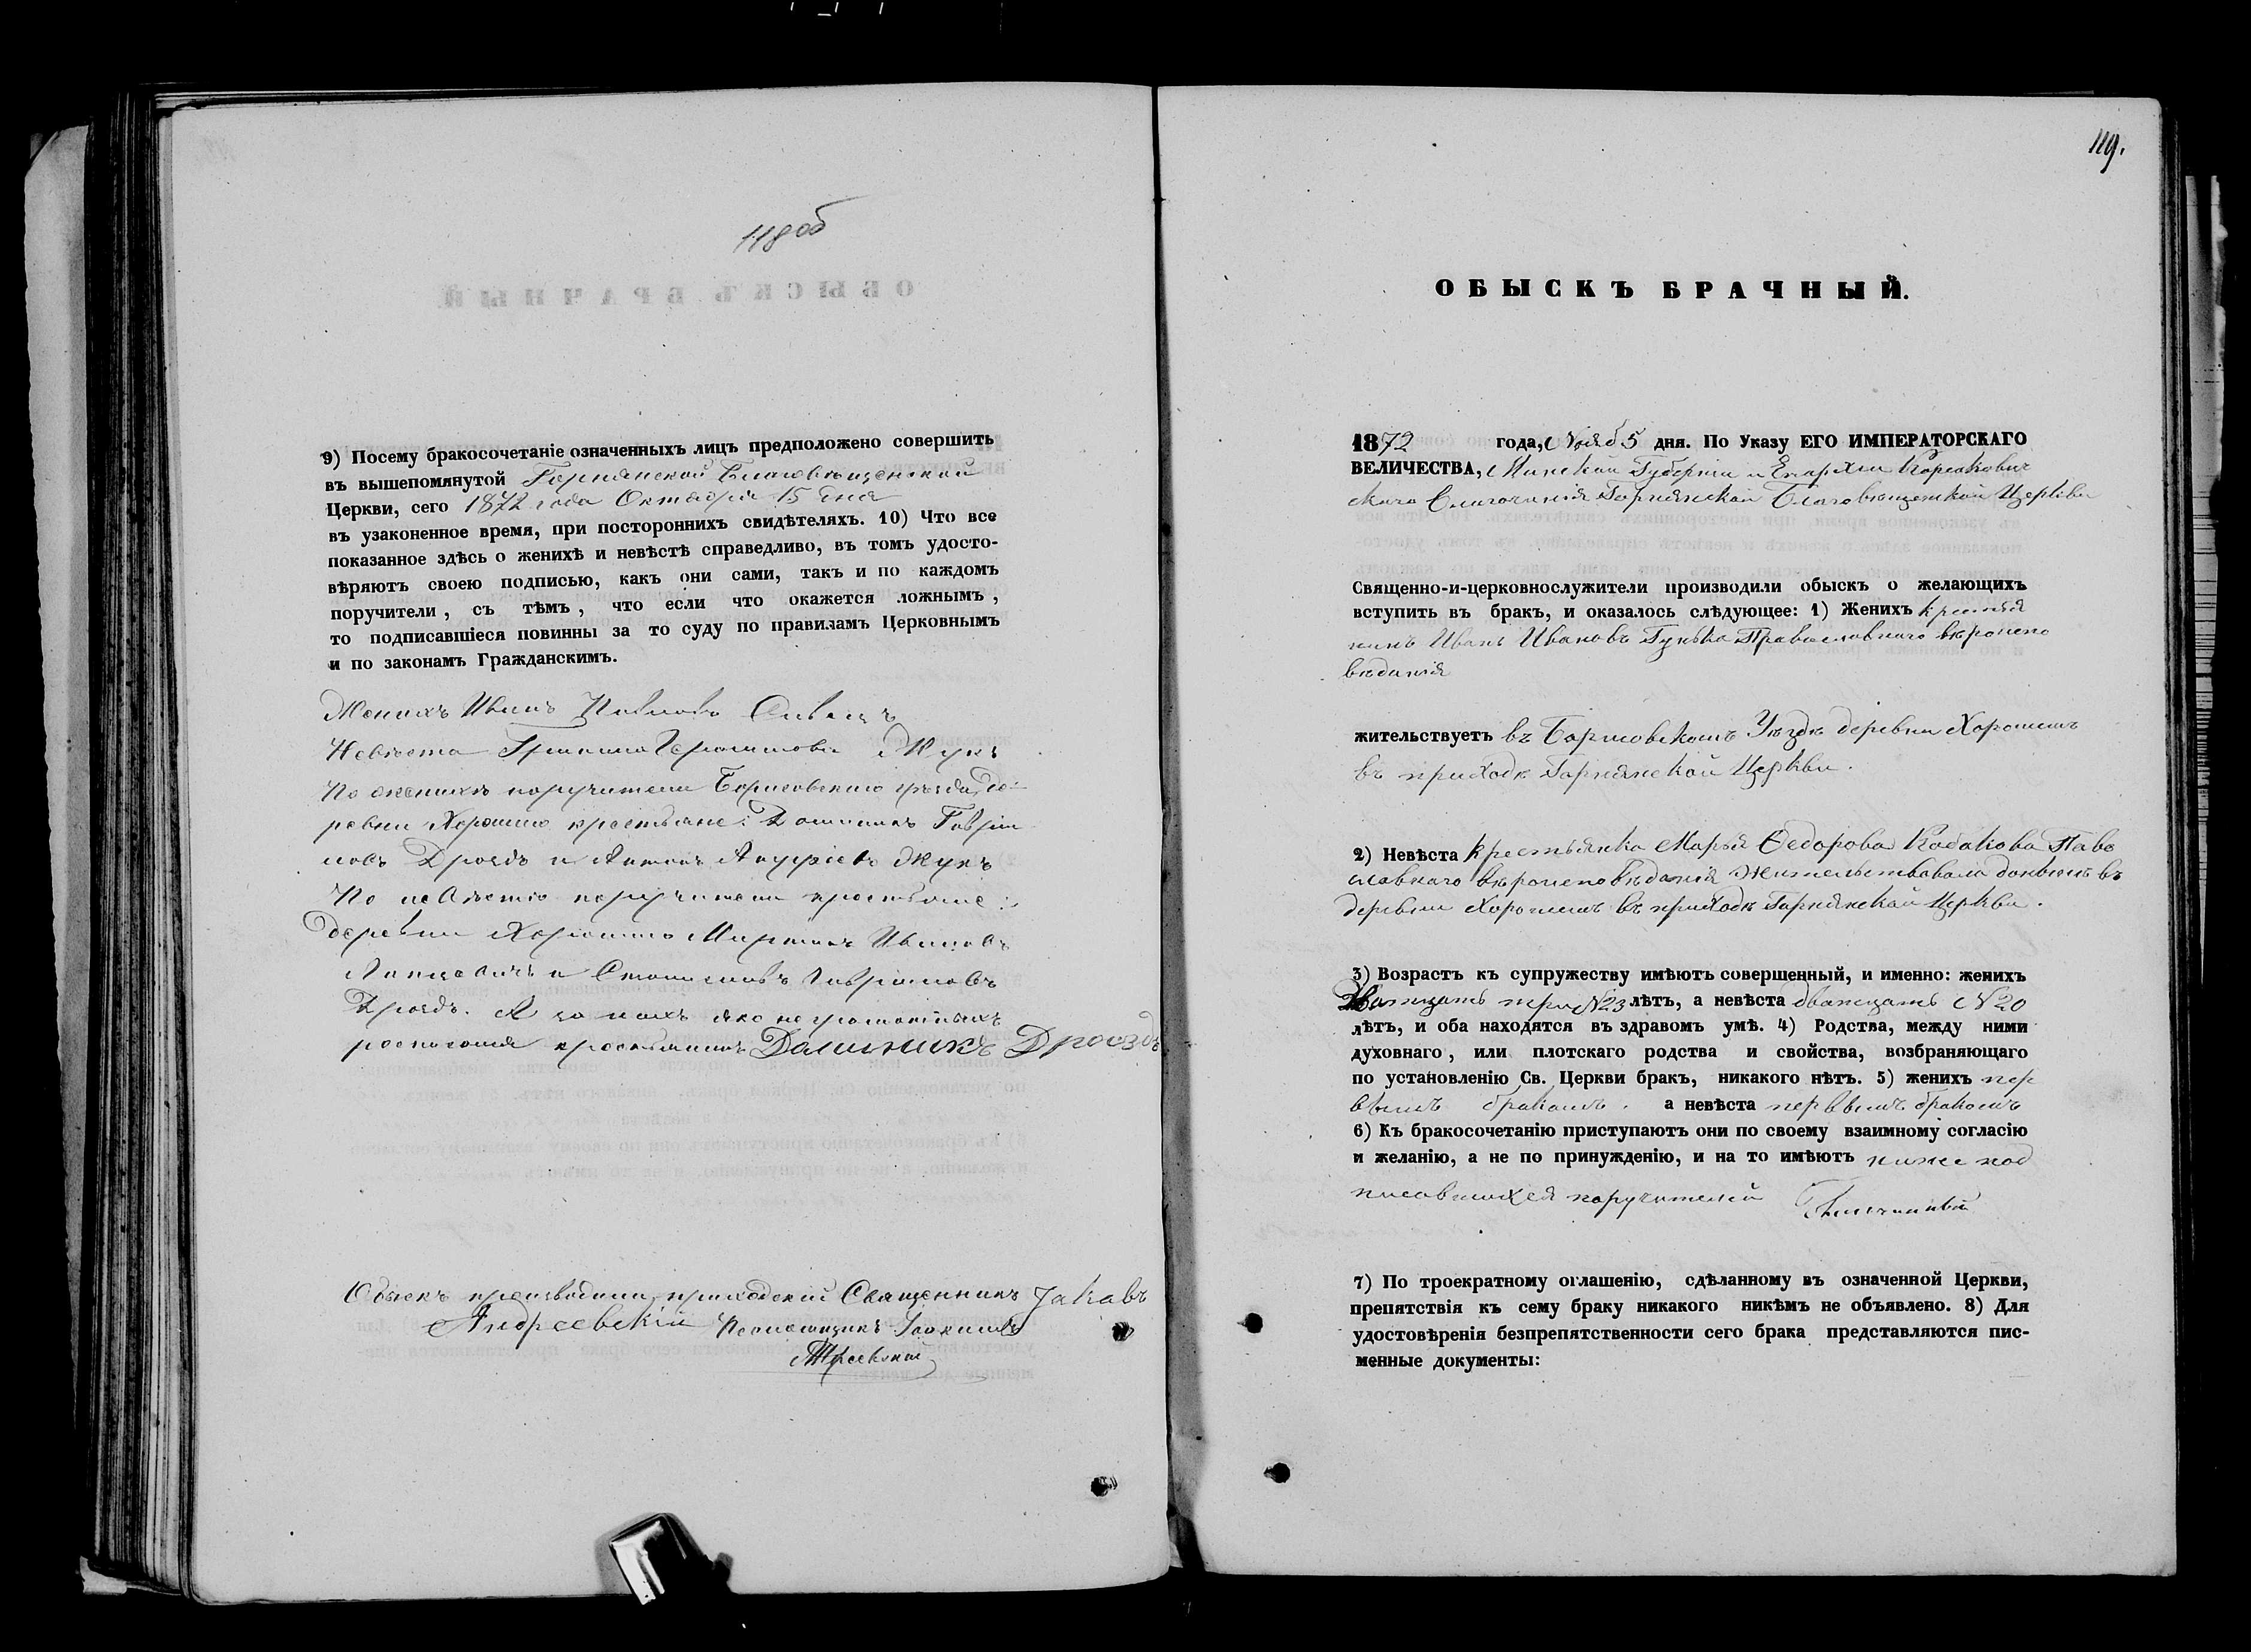 118 об
9) Посему бракосочетаніе означенныхъ лицъ предположено совершить
въ вышепомянутой Горнянской Благовѣщенской
Церкви, сего 1872 года Октября 15 дня
въ узаконенное время, при постороннихъ свидѣтеляхъ. 10) Что все
показанное здѣсь о женихѣ и невѣстѣ справедливо, въ томъ удосто-
вѣряютъ своею подписью, какъ они сами, такъ и по каждомъ
поручители, съ тѣмъ, что если что окажется ложнымъ,
то подписавшіеся повинны за то суду по правиламъ Церковнымъ
и по законамъ Гражданскимъ.
Женихъ Иванъ
Невѣста Жукъ
По женихѣ поручители Борисовскаго уѣзда, де-
ревни крестьяне: Доминикъ Гаврiи
ловъ Дроздъ и Антонъ Жукъ
По невѣстѣ поручители крестьяне:
деревни Мартинъ Ивановъ
и Станиславъ Гавріиловъ
Дроздъ. А за нихъ яко неграмотныхъ
крестьянинъ Долиникъ Дроозд
Обыскъ производили приходскій Священникъ Јаковъ
Андреевскій Псаломщикъ
119.
ОБЫСКЪ БРАЧНЫЙ.
1872 года, Нояб 5 дня. По Указу ЕГО ИМПЕРАТОРСКАГО
ВЕЛИЧЕСТВА, Минской Губерніи и Епархіи Корсакович
скаго Благочинія Горнянской Благовѣщенской Церкви
Священно-и-церковнослужители производили обыскъ о желающихъ
вступить въ бракъ, и оказалось слѣдующее: 1) Женихъ крестья
нинъ Иванъ Ивановъ Гунько Православнаго вѣроиспо
вѣданія
жительствуетъ въ Борисовскомъ Уѣздѣ деревни Хорошемъ
въ приходѣ Горнянской Церкви.
2) Невѣста крестьянка Марья Ѳедорова Кабакова Паво
славнаго вѣроисповѣданія жительствовала донынѣ въ
деревни Хорошемъ въ приходѣ Горнянской Церкви.
3) Возрастъ къ супружеству имѣютъ совершенный, и именно: женихъ
Дватцать три №23 лѣтъ, а невѣста дватцать №20
лѣтъ, и оба находятся въ здравомъ умѣ. 4) Родства, между ними
духовнаго, или плотскаго родства и свойства, возбраняющаго
по установленію Св. Церкви бракъ, никакого нѣтъ. 5) женихъ пер
вымъ бракомъ. а невѣста первымъ бракомъ
6) Къ бракосочетанію приступаютъ они по своему взаимному согласію
и желанію, а не по принужденію, и на то имѣютъ ниже под
писавшихся поручителей
7) По троекратному оглашенію, сдѣланному въ означенной Церкви,
препятствія къ сему браку никакого никѣмъ не объявлено. 8) Для
удостовѣренія безпрепятственности сего брака представляются пис-
менные документы: